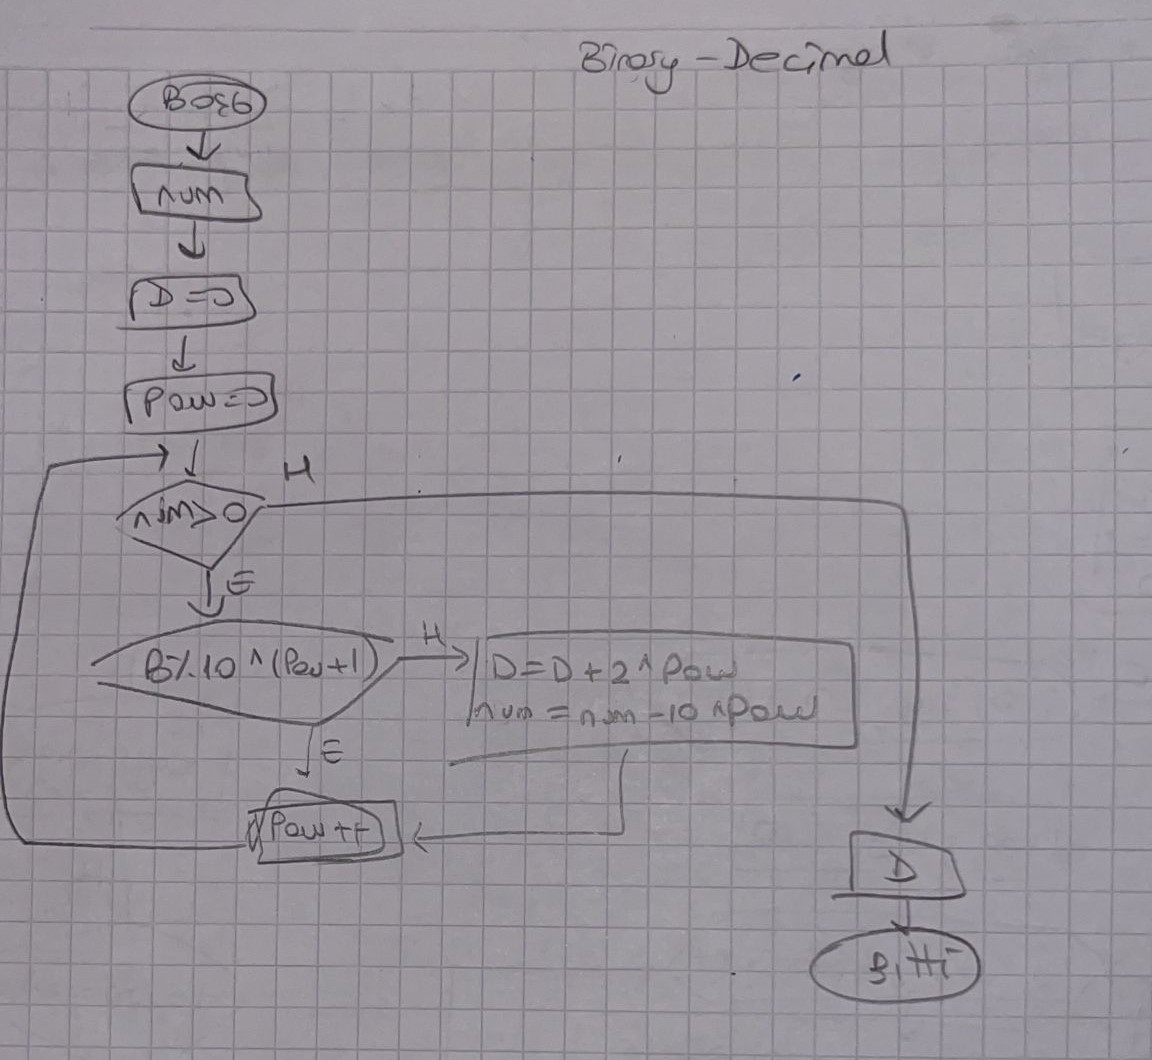 Binary - Decimal
num
D=0
Pow=0
H
num>0
E
B%10^(Pow+1)
H
D=D+2^Pow
num=num-10^Pow
E
Pow++
D
Bitti